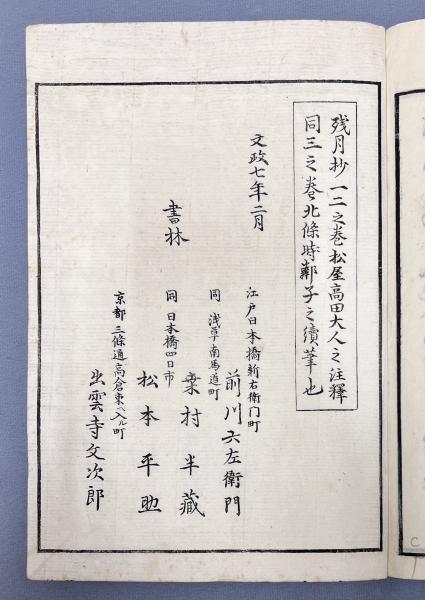 残月抄一二之巻松屋高田大人之注釋
同三之巻北條時鄰子之續筆也
文政七年二月
書林
江戸日本橋新右衛門町
前川六左衛門
同浅草南馬道町
桒村半藏
同日本橋四日市
松本平助
京都三條通高倉東ヘ入ル町
出雲寺文次郎